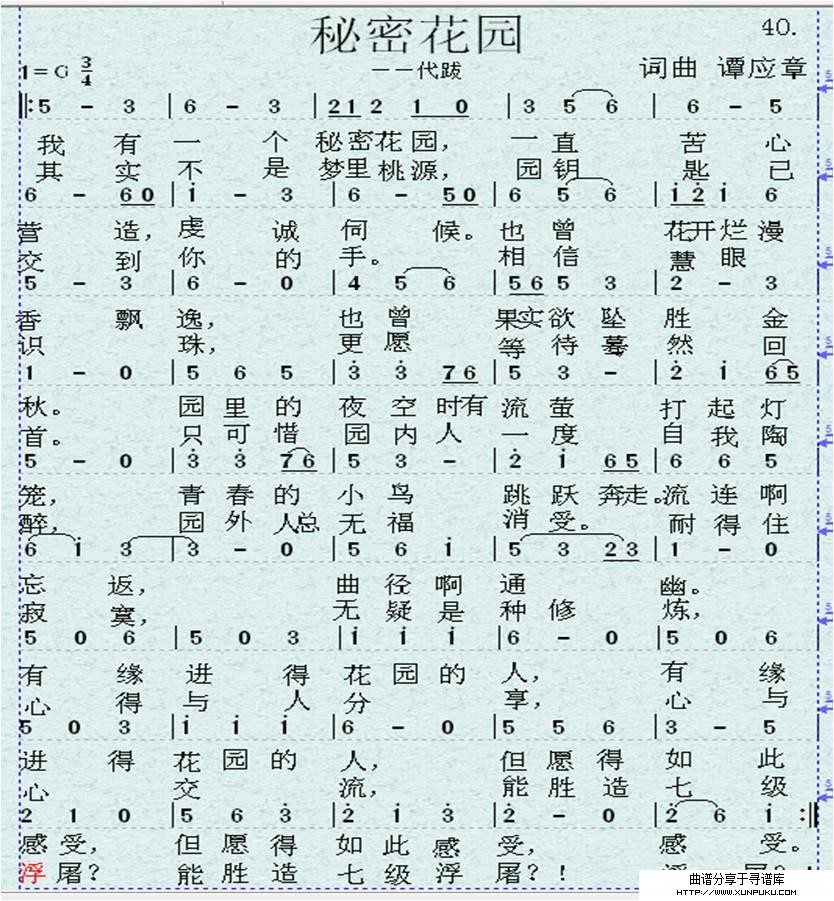 秘密花园
40.
1=G 3/4
——代跋
词曲 谭应章
‖:5 - 3 | 6 - 3 | 21 2 1 0 | 3 5 6 | 6 - 5
我 有 一 个 秘密花园, 一直 苦 心
其 实 不 是 梦里桃源, 园钥 匙 已
6 - 60 | i - 3 | 6 - 50 | 6 5 6 | i2 i 6
营 造, 虔 诚 伺 候。也曾 花开烂漫
交 到 你 的 手。 相信 慧眼
5 - 3 | 6 - 0 | 4 5 6 | 56 5 3 | 2 - 3
香 飘 逸, 也曾 果实欲坠 胜 金
识 珠, 更愿 等待蓦 然 回
1 - 0 | 5 6 5 | 3 3 76 | 5 3 - | 2 i 65
秋。 园里的 夜空时有 流萤 打起灯
首。 只可惜 园内人 一度 自我陶
5 - 0 | 3 3 76 | 5 3 - | 2 i 65 | 6 6 5
笼, 青春的 小鸟 跳跃奔走。流连啊
醉, 园外人总 无福 消受。 耐得住
6 i 3 | 3 - 0 | 5 6 i | 5 3 23 | 1 - 0
忘 返, 曲径啊 通 幽。
寂 寞, 无疑是 种修 炼,
5 0 6 | 5 0 3 | i i i | 6 - 0 | 5 0 6
有 缘 进 得 花园的 人, 有 缘
心 得 与 人 分 享, 心 与
5 0 3 | i i i | 6 - 0 | 5 5 6 | 3 - 5
进 得 花园的 人, 但愿得 如 此
心 交 流, 能胜造 七 级
2 1 0 | 5 6 3 | 2 i 3 | 2 - 0 | 2 6 i :‖
感受, 但愿得 如此感 受, 感 受。
浮屠? 能胜造 七级浮 屠?!
曲谱分享于寻谱库
HTTP://WWW.XUNPUKU.COM